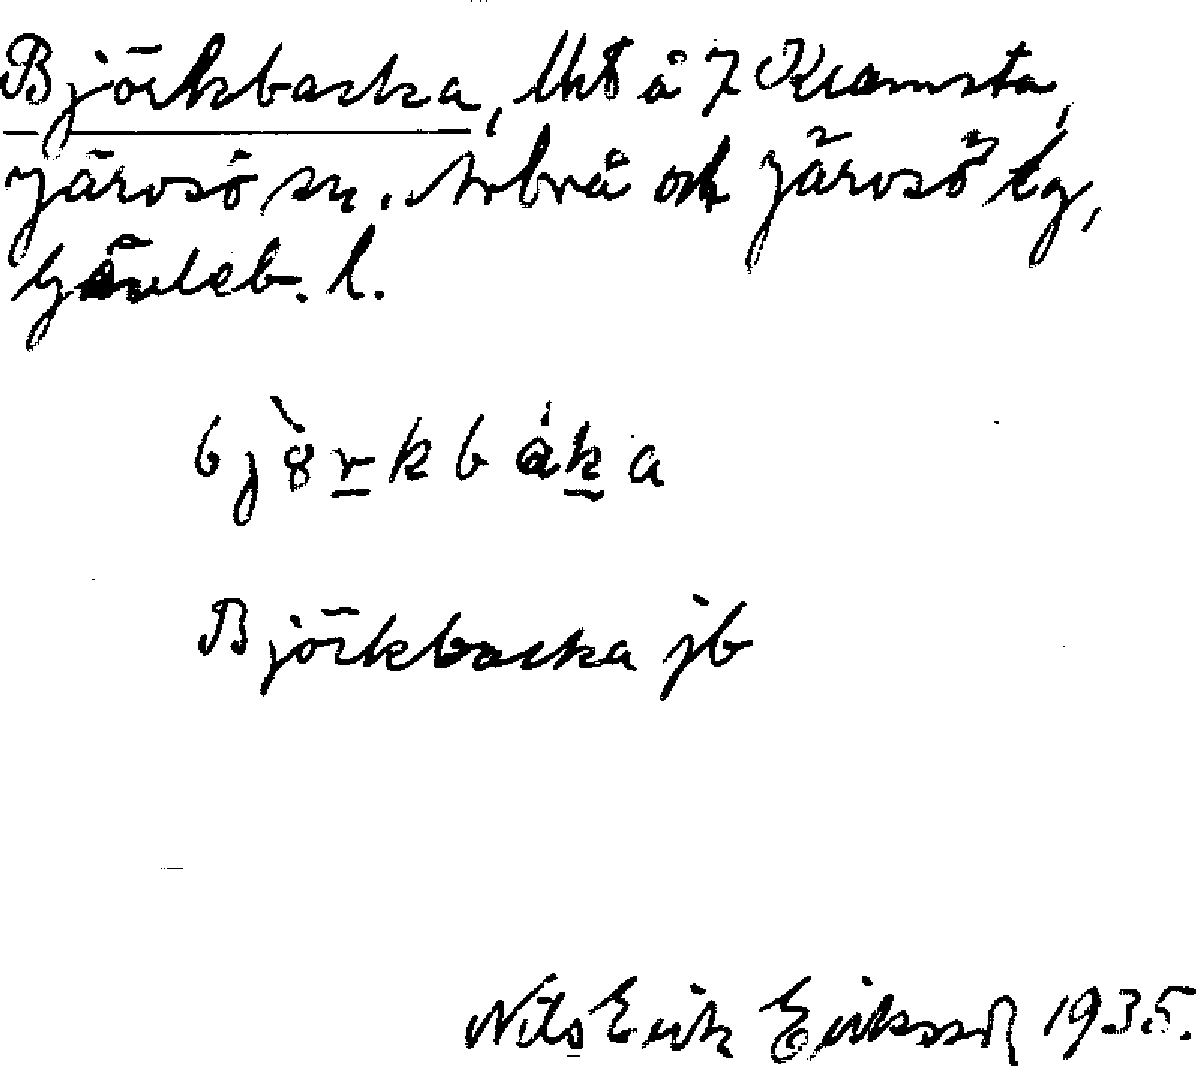 Björkbacka, lht å 7 Kramsta,
Järvsö sn. Arbrå och Järvsö tg,
Gävleb. l.
björkbáka
Björkbacka jb
Nils Erik Eriksson 1935.